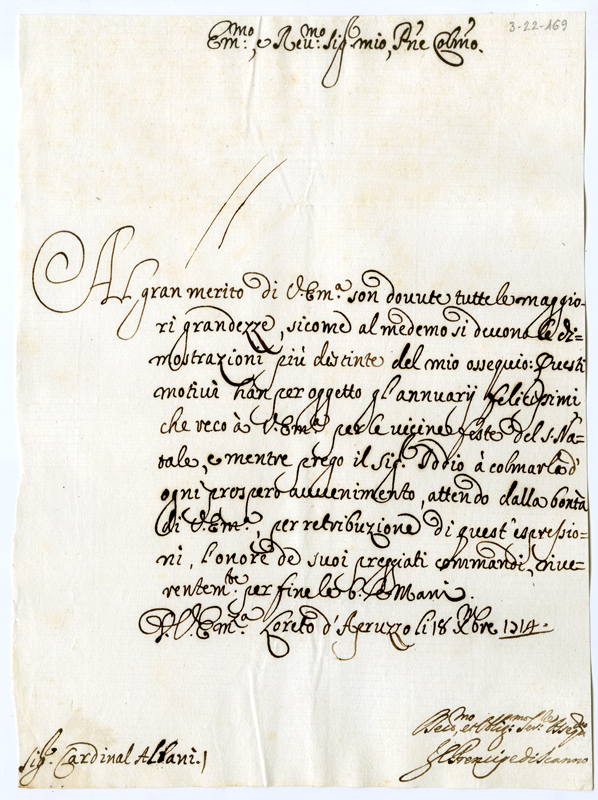 3-22-169
Em.mo, e Reu.mo Sig. mio, Pne Colmo.
Al gran merito di V. Em.a son dovute tutte le maggio-
ri grandezze, sicome al medemo si devono le di=
mostrazioni più distinte del mio ossequio: Questi
motivi han per oggetto gl'annuarij felicissimi
che reco à V. Em.a per le vicine feste del S. Na=
tale, e mentre prego il Sig. Iddio à colmarla d'
ogni prospero avvenimento, attendo dalla bontà
di V. Em.a, per retribuzione di quest'espressio=
ni, l'onore de suoi preggiati commandi, e rive=
rentem.te per fine le b. le Mani.
D. V. Em.za Loreto d'Apruzzo li 18 Xbre 1714.
Sig. Cardinal Albani.
Il Prencipe di Scanno